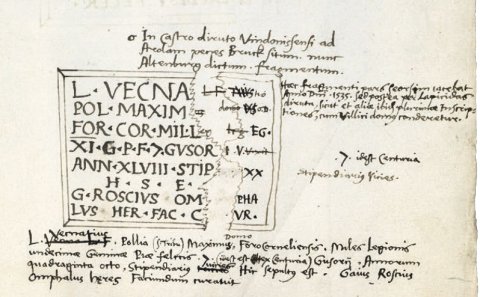 In Castro diruto Vindonissensi ad
Arolam prope Bruck situm. nunc
Altenburg dictum. fragmentum.
L. VECNA
POL. MAXIM
FOR. COR. MILL EG.
XI. G. P. F. 7. GUSOR I V.
ANN. XLVIII STIP XX
H. S. E
G. ROSCIUS OM PHA
LUS HER. FAC. C VR.
Hæc fragmenti pars seorsim iacebat
Anno Dni. 1535. sed postea per lapicidas
diruta, sicut et aliæ ibid. plurimæ Inscrip-
tiones, cum Villici domus conderetur.
7. idest Centuria
Stipendiarius
L. Pollia (Tribu) Maximus, Domo Foro Corneliensis, Miles Legionis
undecimæ Geminæ Piæ felicis, 7. idest (ex Centuria) Gusorii, Annorum
quadraginta octo, Stipendiario Hic sepultus est. Gaius Roscius
Omphalus heres Faciundum curavit.